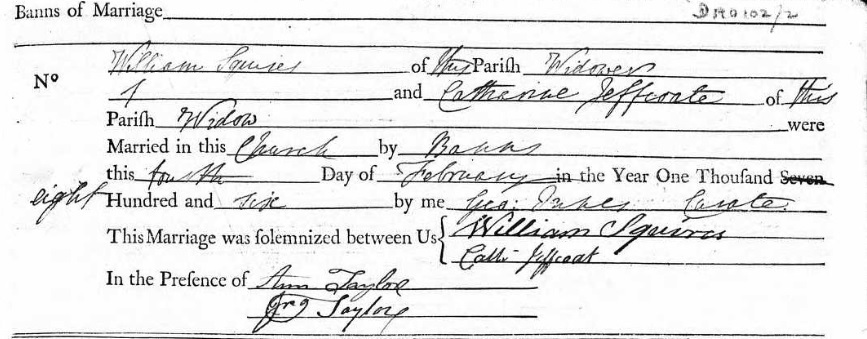 Banns of Marriage DR0102/2
William Squires of this Parish Widower
No 1 and Catharine Jeffcoate of this
Parish Widow were
Married in this Church by Banns
this fourth Day of February in the Year One Thousand Seven
eight Hundred and six by me Geo: Curate
This Marriage was solemnized between Us William Squires
Cath: Jeffcoat
In the Presence of Ann Taylor
Taylor